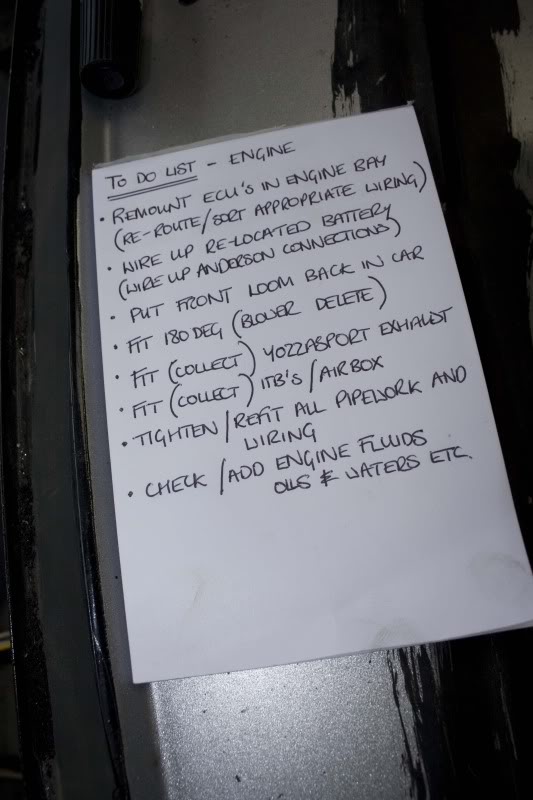 TO DO LIST - ENGINE
• REMOUNT ECU'S IN ENGINE BAY
(RE-ROUTE/SORT APPROPRIATE WIRING)
• WIRE UP RE-LOCATED BATTERY
(WIRE UP ANDERSON CONNECTIONS)
• PUT FRONT LOOM BACK IN CAR
• FIT 180 DEG (BLOWER DELETE)
• FIT (COLLECT) YOZZASPORT EXHAUST
• FIT (COLLECT) ITB'S/AIRBOX
• TIGHTEN/REFIT ALL PIPEWORK AND
WIRING
• CHECK/ADD ENGINE FLUIDS
OILS & WATERS ETC.